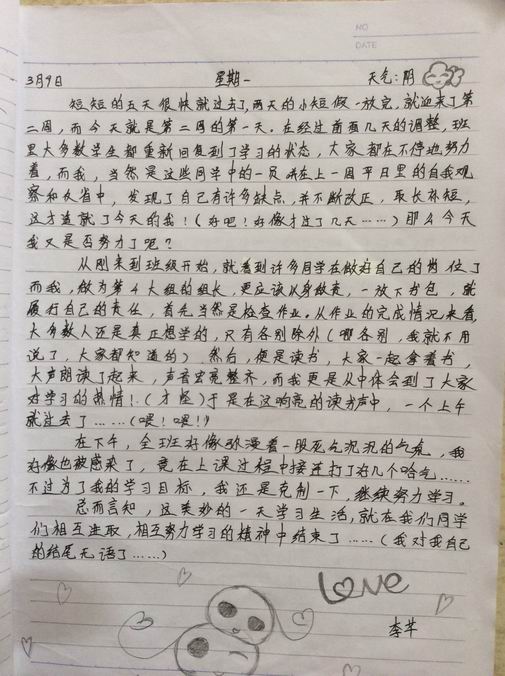 NO
DATE
3月9日 星期一 天气:阴
短短的五天很快就过去了,两天的小短假一放完,就迎来了第
二周,而今天就是第二周的第一天。在经过前面几天的调整,班
里大多数学生都重新回复到了学习的状态,大家都在不停地努力
着,而我,当然是这些同学中的一员 在上一周平日里的自我观
察和反省中,发现了自己有许多缺点,并不断改正,取长补短,
这才造就了今天的我!(好吧!好像才过了几天……)那么今天
我又是否努力了呢?
从刚来到班级开始,就看到许多同学在做好自己的岗位了
而我,做为第4大组的组长,更应该以身做责,一放下书包,就
履行自己的责任,首先当然是检查作业。从作业的完成情况来看,
大多数人还是真正想学的,只有各别除外(哪各别,我就不用
说了,大家都知道的)然后,便是读书,大家一起拿着书,
大声朗读了起来,声音宏亮整齐,而我更是从中体会到了大家
对学习的热情!(才怪)于是在这响亮的读书声中,一个上午
就过去了……(喂!喂!!)
在下午,全班好像弥漫着一股死气沉沉的气氛,我
好像也被感染了,竟在上课过程中接连打了好几个哈气……
不过为了我的学习目标,我还是克制一下,继续努力学习。
总而言知,这美妙的一天学习生活,就在我们同学
们相互进取,相互努力学习的精神中结束了……(我对我自己
的结尾无语了……)
Love
李芊